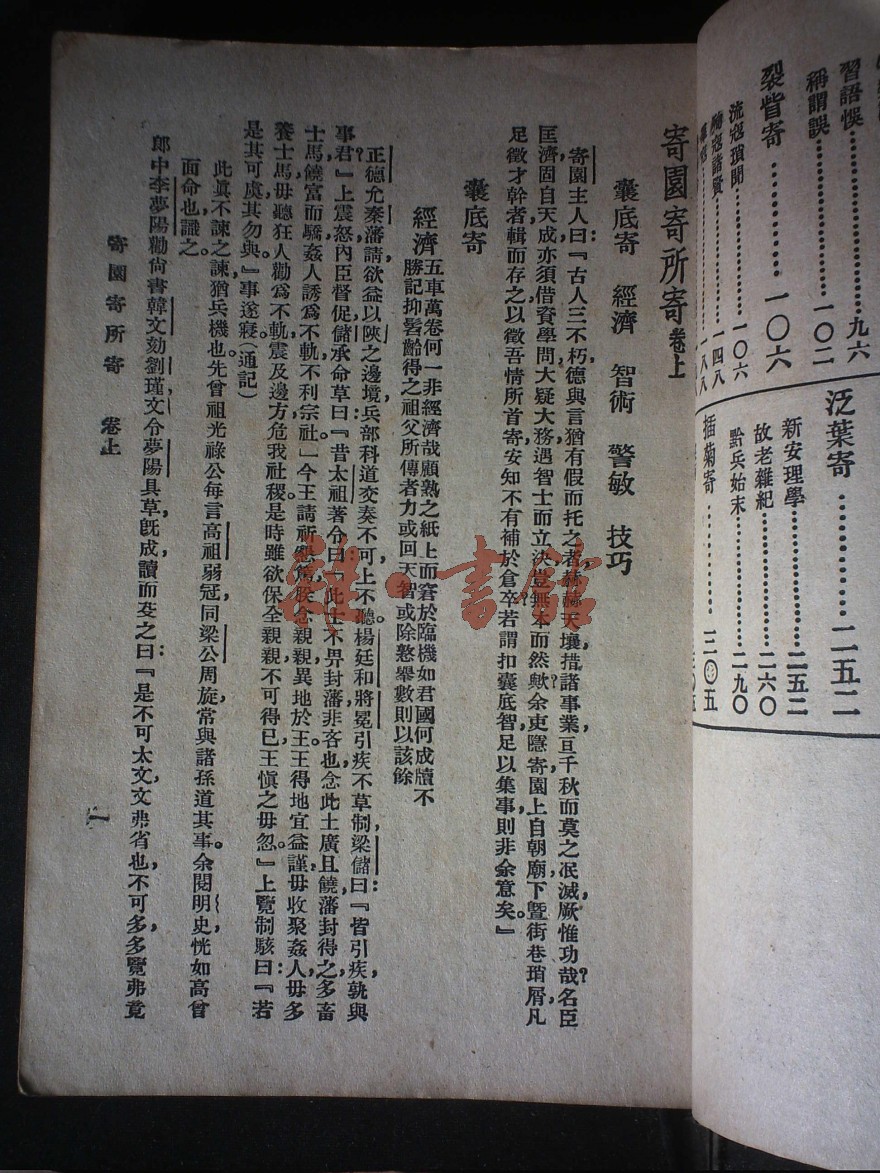 習語悞⋯⋯⋯⋯九六
稱謂誤⋯⋯⋯⋯一〇二
裂眥寄⋯⋯⋯⋯一〇六
流寇瑣聞⋯⋯⋯⋯一〇六
泛葉寄⋯⋯⋯⋯二五二
新安理學⋯⋯⋯⋯二五二
故老雜紀⋯⋯⋯⋯二六〇
黔兵始末⋯⋯⋯⋯二九〇
插菊寄⋯⋯⋯⋯三〇五
寄園寄所寄卷上
囊底寄 經濟 智術 警敏 技巧
寄園主人曰:『古人三不朽,德與言猶有假而托之者,赫赫天壤,措諸事業,亘千秋而莫之泯滅,厥惟功哉?名臣
匡濟,固自天成,亦須借資學問,大疑大務,遇智士而立決,豈無本而然歟?余吏隱寄園,上自朝廟,下暨街巷瑣屑,凡
足徵才幹者,輯而存之,以徵吾情所首寄,安知不有補於倉卒,若謂扣囊底智,足以集事,則非余意矣。』
囊底寄
經濟 五車萬卷何一非經濟哉顧熟之紙上而窘於臨機如君國何成牘不
勝記抑髫齡得之祖父所傳者力或回天智或除憝舉數則以該餘
正德允秦藩請,欲益以陝之邊境,兵部科道交奏不可,上不聽。楊廷和將冕引疾不草制,梁儲曰:『皆引疾,孰與
事君?』上震怒,內臣督促,儲承命草曰:『昔太祖著令曰:「此土不畀封藩,非吝也,念此土廣且饒,藩封得之,多畜
士馬,饒富而驕,姦人誘爲不軌,不利宗社。」今王請祈懇篤,朕念親親,異地於王,王得地,宜益謹,毋收聚姦人,毋多
養士馬,毋聽狂人勸爲不軌,震及邊方,危我社稷,是時雖欲保全親親,不可得已,王慎之毋忽。』上覽制駭曰:『若
是其可虞,其勿與。』事遂寢。(通記)
此眞不諫之諫,猶兵機也,先曾祖光祿公每言高祖弱冠,同梁公周旋,常與諸孫道其事。余閱明史,恍如高曾
面命也,識之。
郎中李夢陽勸尙書韓文劾劉瑾,文令夢陽具草,旣成,讀而芟之曰:『是不可太文,文弗省也,不可多,多覽弗竟
寄園寄所寄 卷上
一
雜·書館